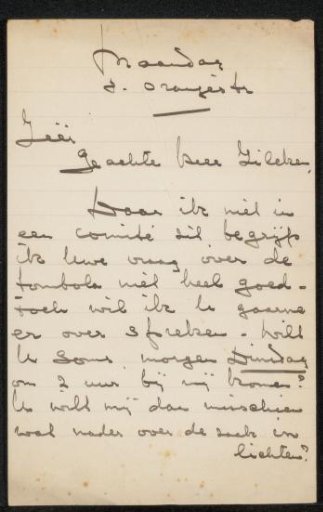 Maandag
8. Oranjestr
Geachte heer Zilcken,
Daar ik niet in
een comité zit begrijp
ik Uwe vraag over de
tombola niet heel goed -
toch wil ik U gaarne
er over spreken - Wilt
U soms morgen Dinsdag
om 2 uur bij mij komen?
U wilt mij dan misschien
wat nader over de zaak in
lichten?